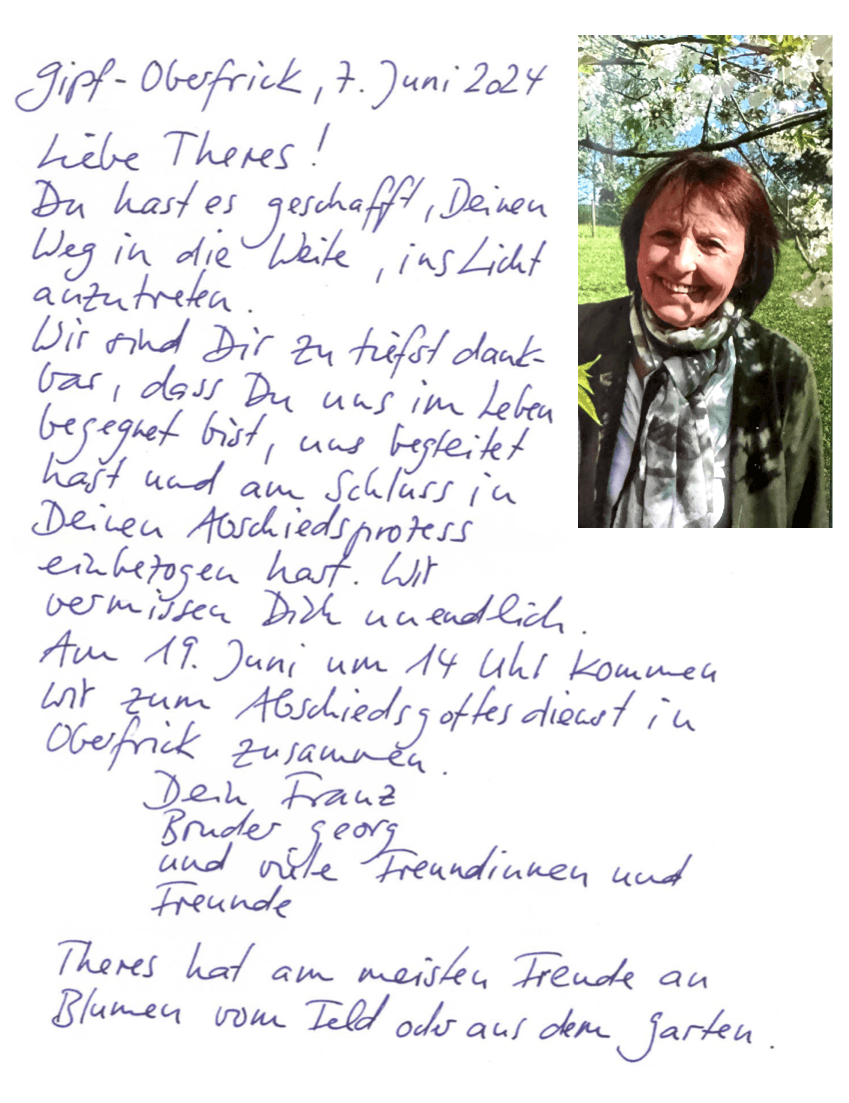 Gipf-Oberfrick, 7. Juni 2024
Liebe Theres!
Du hast es geschafft, Deinen
Weg in die Weite, ins Licht
anzutreten.
Wir sind Dir zu tiefst dank-
bar, dass Du uns im Leben
begegnet bist, uns begleitet
hast und am Schluss in
Deinen Abschiedsprozess
einbezogen hast. Wir
vermissen Dich unendlich.
Am 19. Juni um 14 Uhr kommen
wir zum Abschiedsgottesdienst in
Oberfrick zusammen.
Dein Franz
Bruder Georg
und viele Freundinnen und
Freunde
Theres hat am meisten Freude an
Blumen vom Feld oder aus dem Garten.